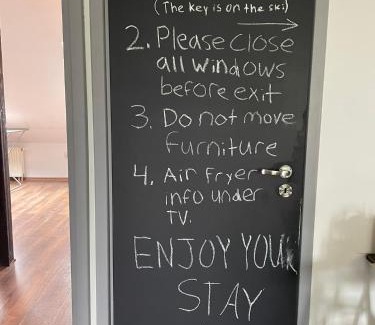 (The key is on the ski)
2. Please close
all windows
before exit
3. Do not move
furniture
4. Air fryer
info under
TV.
ENJOY YOUR
STAY